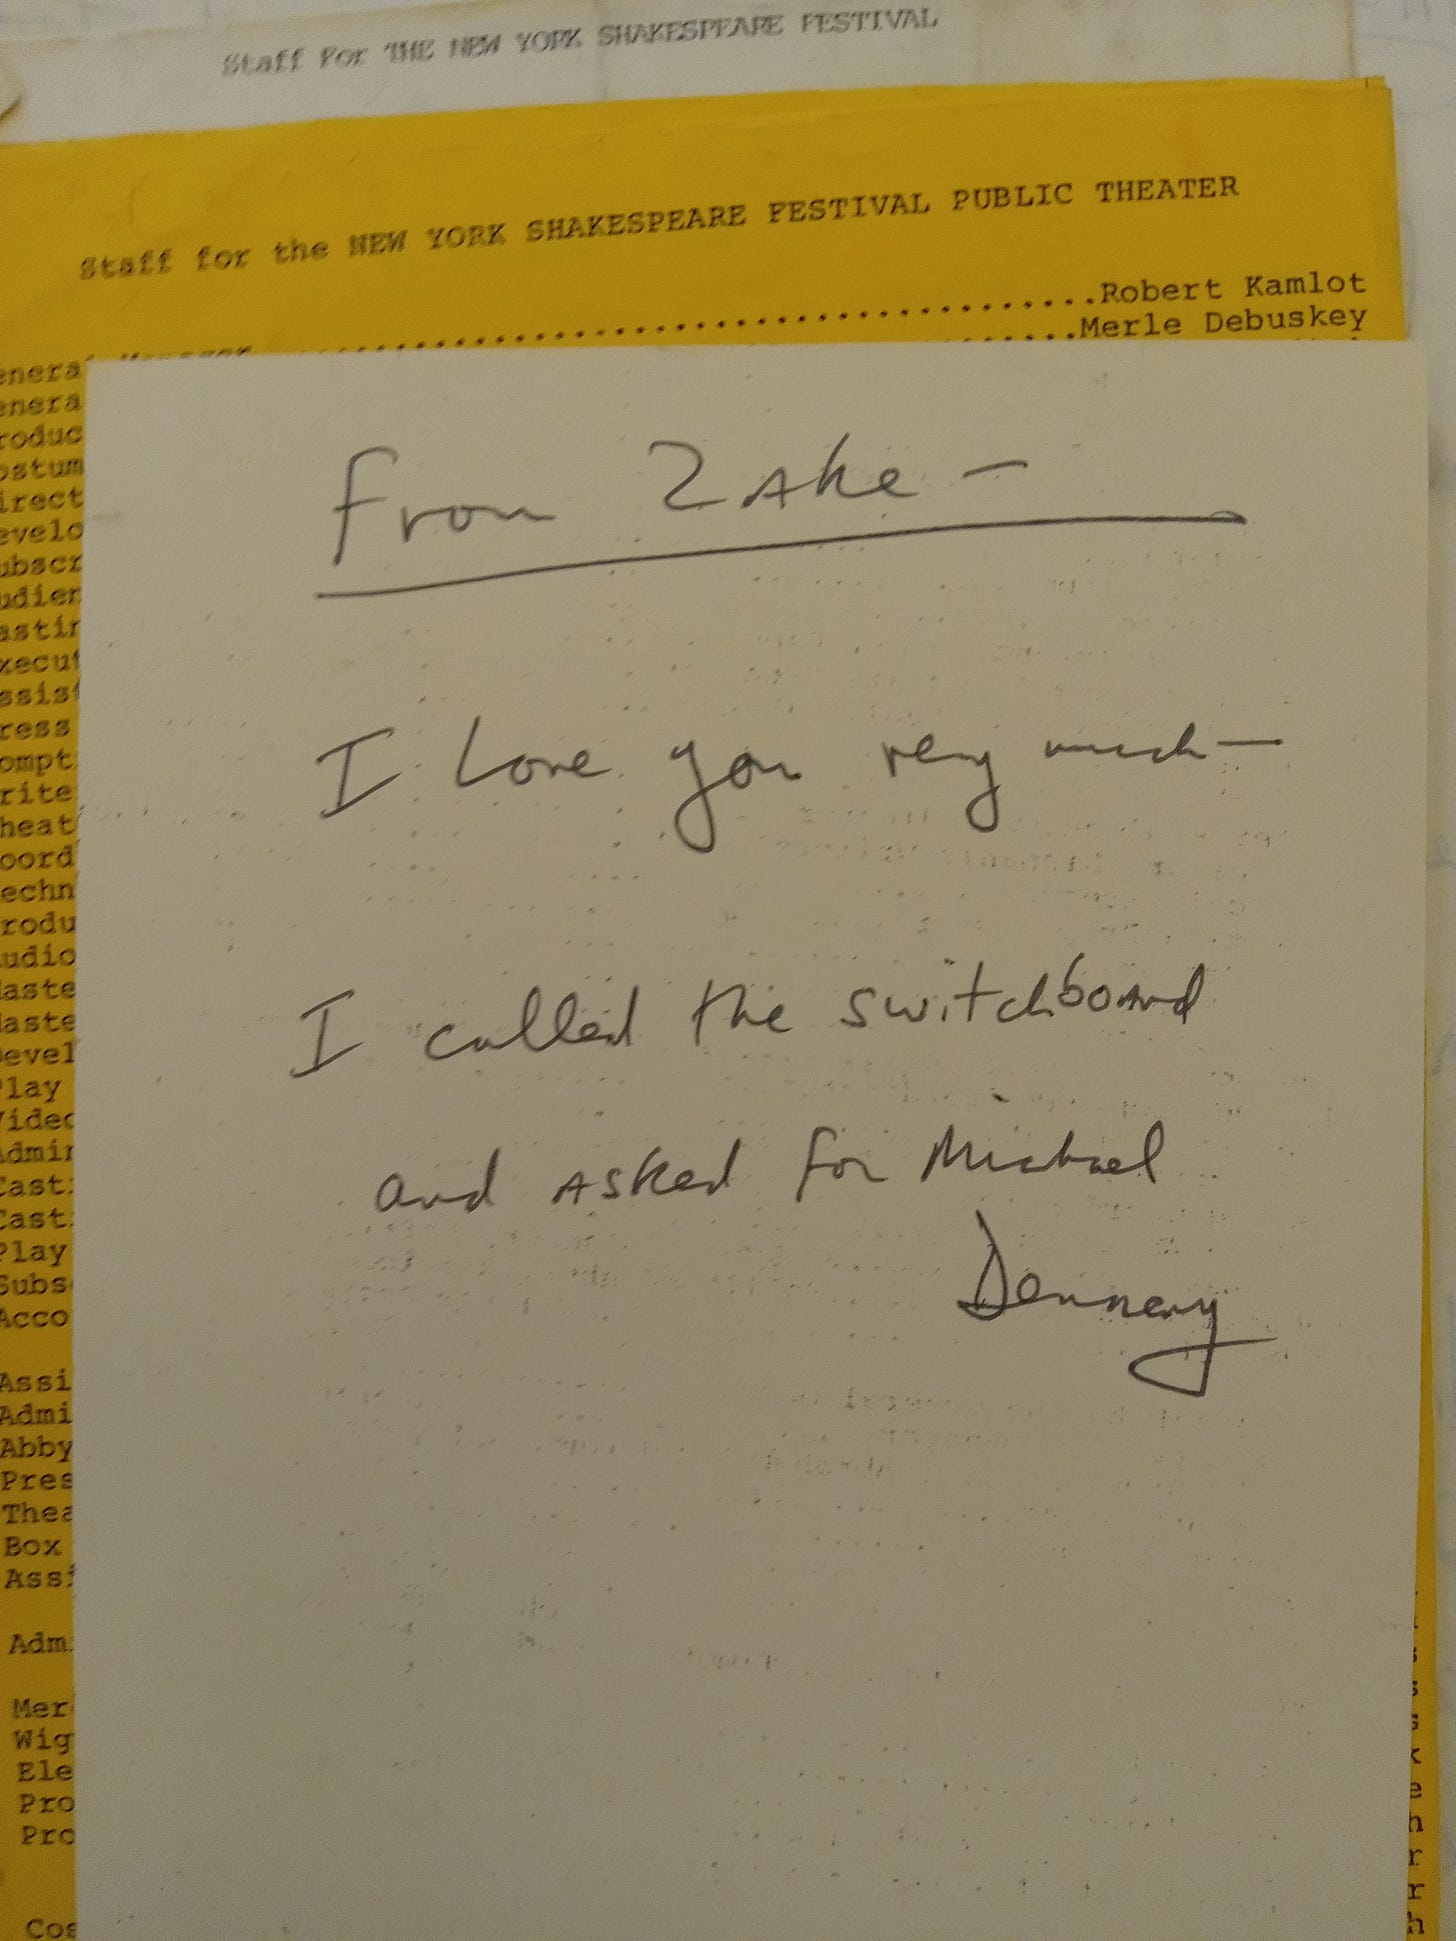 Staff For THE NEW YORK SHAKESPEARE FESTIVAL
Staff for the NEW YORK SHAKESPEARE FESTIVAL PUBLIC THEATER
....................................Robert Kamlot
......Merle Debuskey
enera
enera
roduc
ostum
irect
evelo
ubscr
udien
astin
xecut
ssist
ress
ompt
rite
heat
oord
echn
rodu
udio
aste
aste
evel
Play
Video
Admin
Casti
Cast
Play
Subs
Acco
Assi
Admi
Abby
Pres
Thea
Box
Assi
Adm
Mer
Wig
Ele
Pro
Pro
Cos
From Zake —
I love you very much —
I called the switchboard
and asked for Michael
Dennery